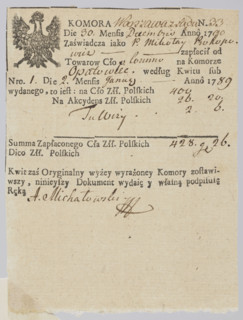 KOMORA Warszawska N. 33
Die 30. Mensis Decembris Anno 1790
Zaświadcza iako P. Mikołay Prokopo-
wicz zapłacił od
Towarow Cło a Consumo na Komorze
Opatowiec według Kwitu sub
Nro. 1. Die 2. Mensis January Anno 1789
wydanego, to iest: na Cło Złł. Polskich 400
Na Akcydens Złł. Polskich 26. 20
2 6.
Summa Zapłaconego Cła Złł. Polskich 428. g 26.
Dico Złł. Polskich
Kwit zaś Oryginalny wyżey wyrażoney Komory zostawi-
wszy, ninieyszy Dokument wydaię y własną podpisuię
Ręką A. Michałowski